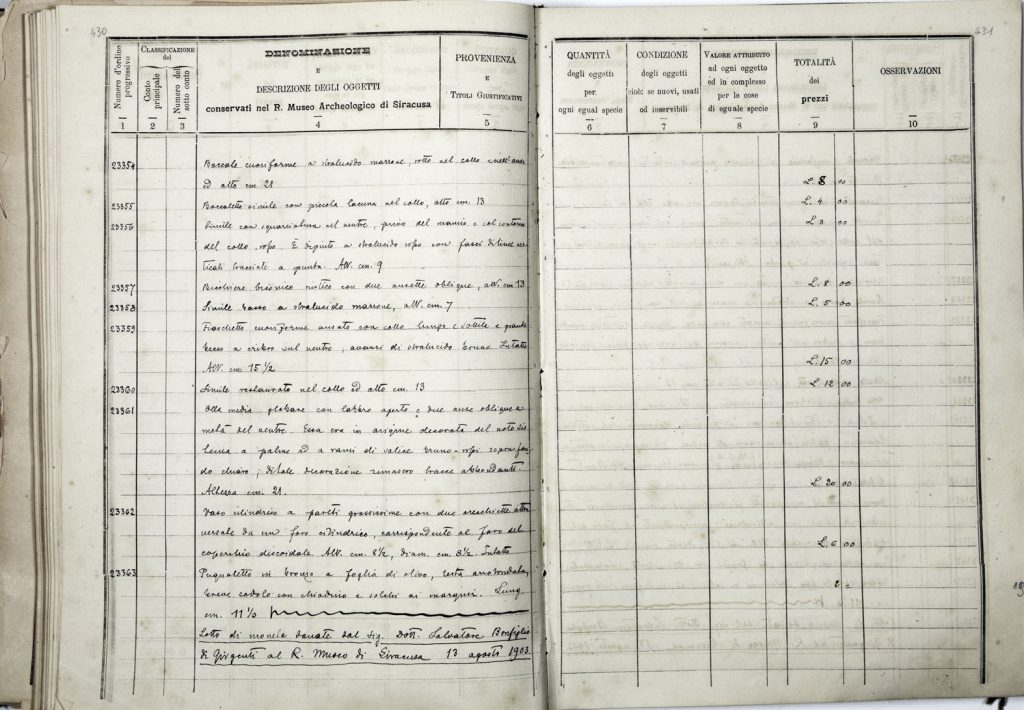 430
Numero d'ordine progressivo
CLASSIFICAZIONE del
Conto principale
Numero del sotto conto
DENOMINAZIONE
E
DESCRIZIONE DEGLI OGGETTI
conservati nel R. Museo Archeologico di Siracusa
PROVENIENZA
E
TITOLI GIUSTIFICATIVI
1 2 3 4 5
23354 Boccale cuoriforme a stralucido marrone, rotto nel collo e nell'ansa
ed alto cm. 21
23355 Boccaletto simile con piccola lacuna nel collo, alto cm. 13
23356 Simile con squarciatura nel ventre, privo del manico e col contorno
del collo roso. È dipinto a stralucido roso con fasci di linee ver-
ticali tracciate a punta. Alt. cm. 9
23357 Bicchiere biconico rustico con due ansette oblique, alt. cm. 13
23358 Simile rosso a stralucido marrone, alt. cm. 7
23359 Fiaschetto cuoriforme ansato con collo lungo e sottile e grande
becco a cribro sul ventre, avanzi di stralucido bruno. Intatto
Alt. cm. 15 ½
23360 Simile restaurato nel collo ed alto cm. 13
23361 Olla media globare con labbro aperto e due anse oblique a
metà del ventre. Essa era in origine decorata del noto
a palme ed a rami di salice bruno-rossi sopra fon-
do chiaro; di tale decorazione rimasero tracce abbondanti.
Altezza cm. 21.
23362 Vaso cilindrico a pareti grossissime con due orecchiette attra-
versate da un foro cilindrico, corrispondente al foro del
coperchio discoidale. Alt. cm. 8½, diam. cm. 8½. Intatto
23363 Pugnaletto in bronzo a foglia di olivo, testa arrotondata,
breve codolo con chiodino e solchi ai margini. Lung.
cm. 11 ½
Lotto di donate dal Sig. Dott. Salvatore Bonfiglio
di Girgenti al R. Museo di Siracusa 13 agosto 1903.
431
QUANTITÀ
degli oggetti
per
ogni egual specie
6
CONDIZIONE
degli oggetti
cioè: se nuovi, usati
od inservibili
7
VALORE ATTRIBUITO
ad ogni oggetto
ed in complesso
per le cose
di eguale specie
8
TOTALITÀ
dei
prezzi
9
OSSERVAZIONI
10
L. 8 00
L. 4 00
L. 3 00
L. 8 00
L. 5 00
L. 15 00
L. 12 00
L. 20 00
L. 6 00
2 =